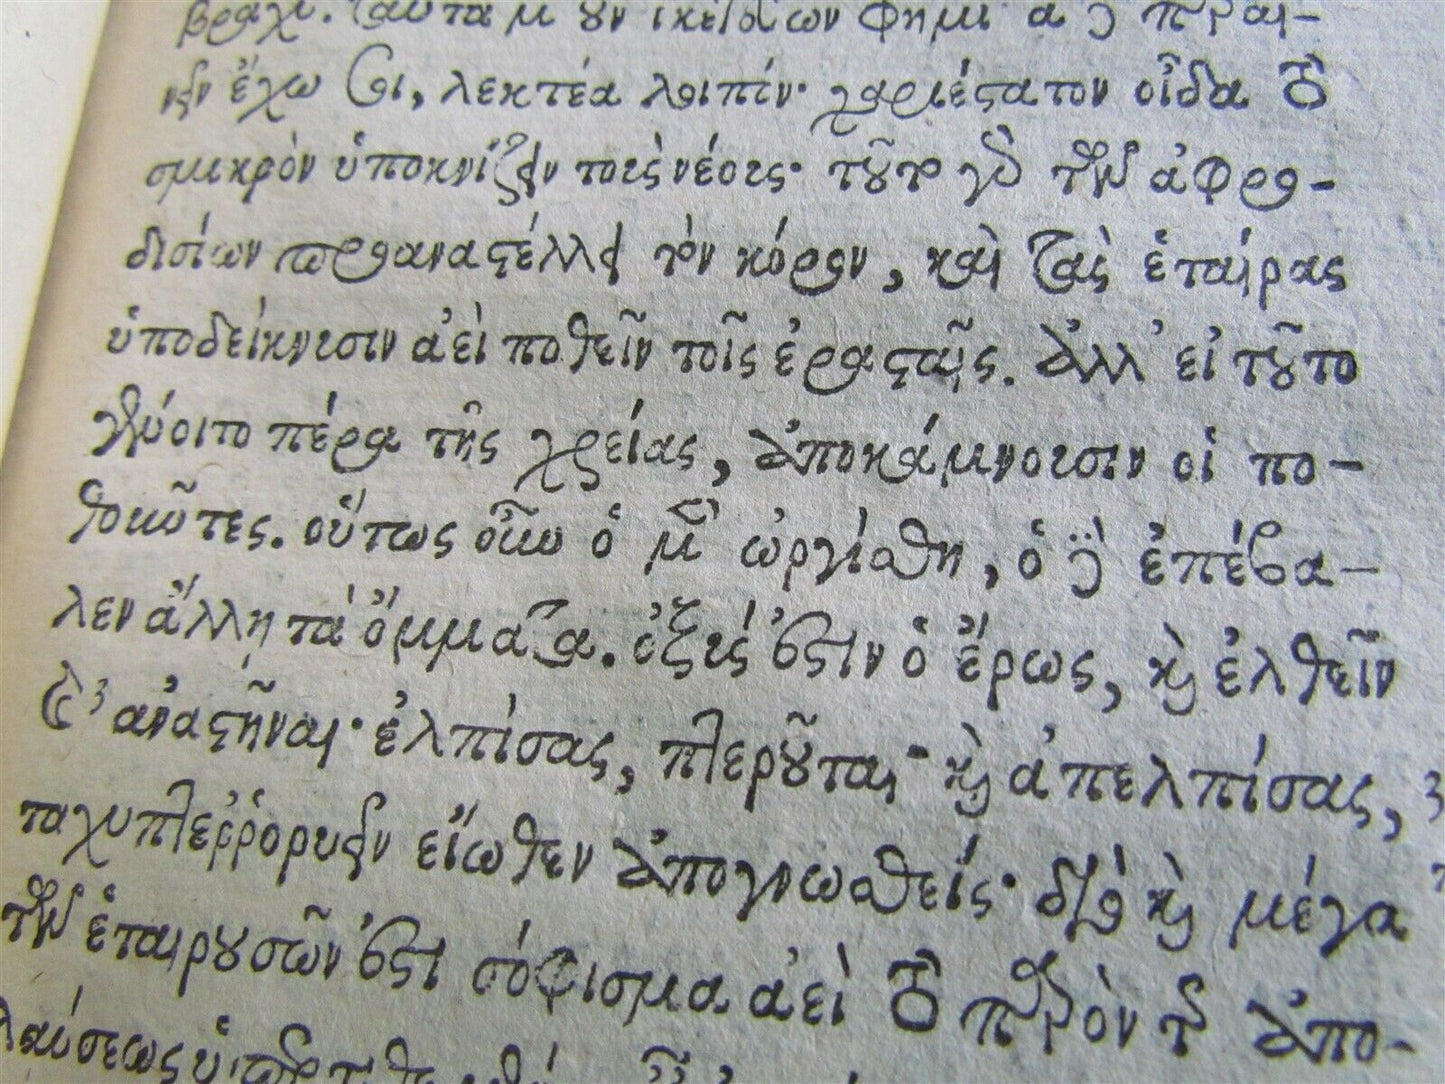 βραχι. ταῦτα μὲν οὖν ἐκείνων φημὶ ἃ δὲ παραι-
νεῖν ἔχω σοι, λεκτέα λοιπόν· χαριέστατον οἶδα τὸ
σμικρὸν ὑποκνίζειν τοὺς νέους· τοῦτο γὰρ τῶν ἀφρο-
δισίων προαναστέλλει τὸν κόρον, καὶ τὰς ἑταίρας
ὑποδείκνυσιν ἀεὶ ποθεῖν τοῖς ἐρασταῖς. ἀλλ' εἰ τοῦτο
γένοιτο πέρα τῆς χρείας, ἀποκάμνουσιν οἱ πο-
θοῦντες. οὕτως οὖν ὁ μὲν ὠργίσθη, ὁ δὲ ἐπέβα-
λεν ἄλλῃ τὰ ὄμματα. ὀξύς ἐστιν ὁ ἔρως, καὶ ἐλθεῖν
καὶ ἀναπτῆναι· ἐλπίσας, πτεροῦται· καὶ ἀπελπίσας,
ταχὺ πτερορρυεῖν εἴωθεν ἀπογνωσθείς· διὸ καὶ μέγα
τῶν ἑταιρουσῶν ἐστι σόφισμα ἀεὶ τὸ παρὸν τῆς ἀπο-
λαύσεως